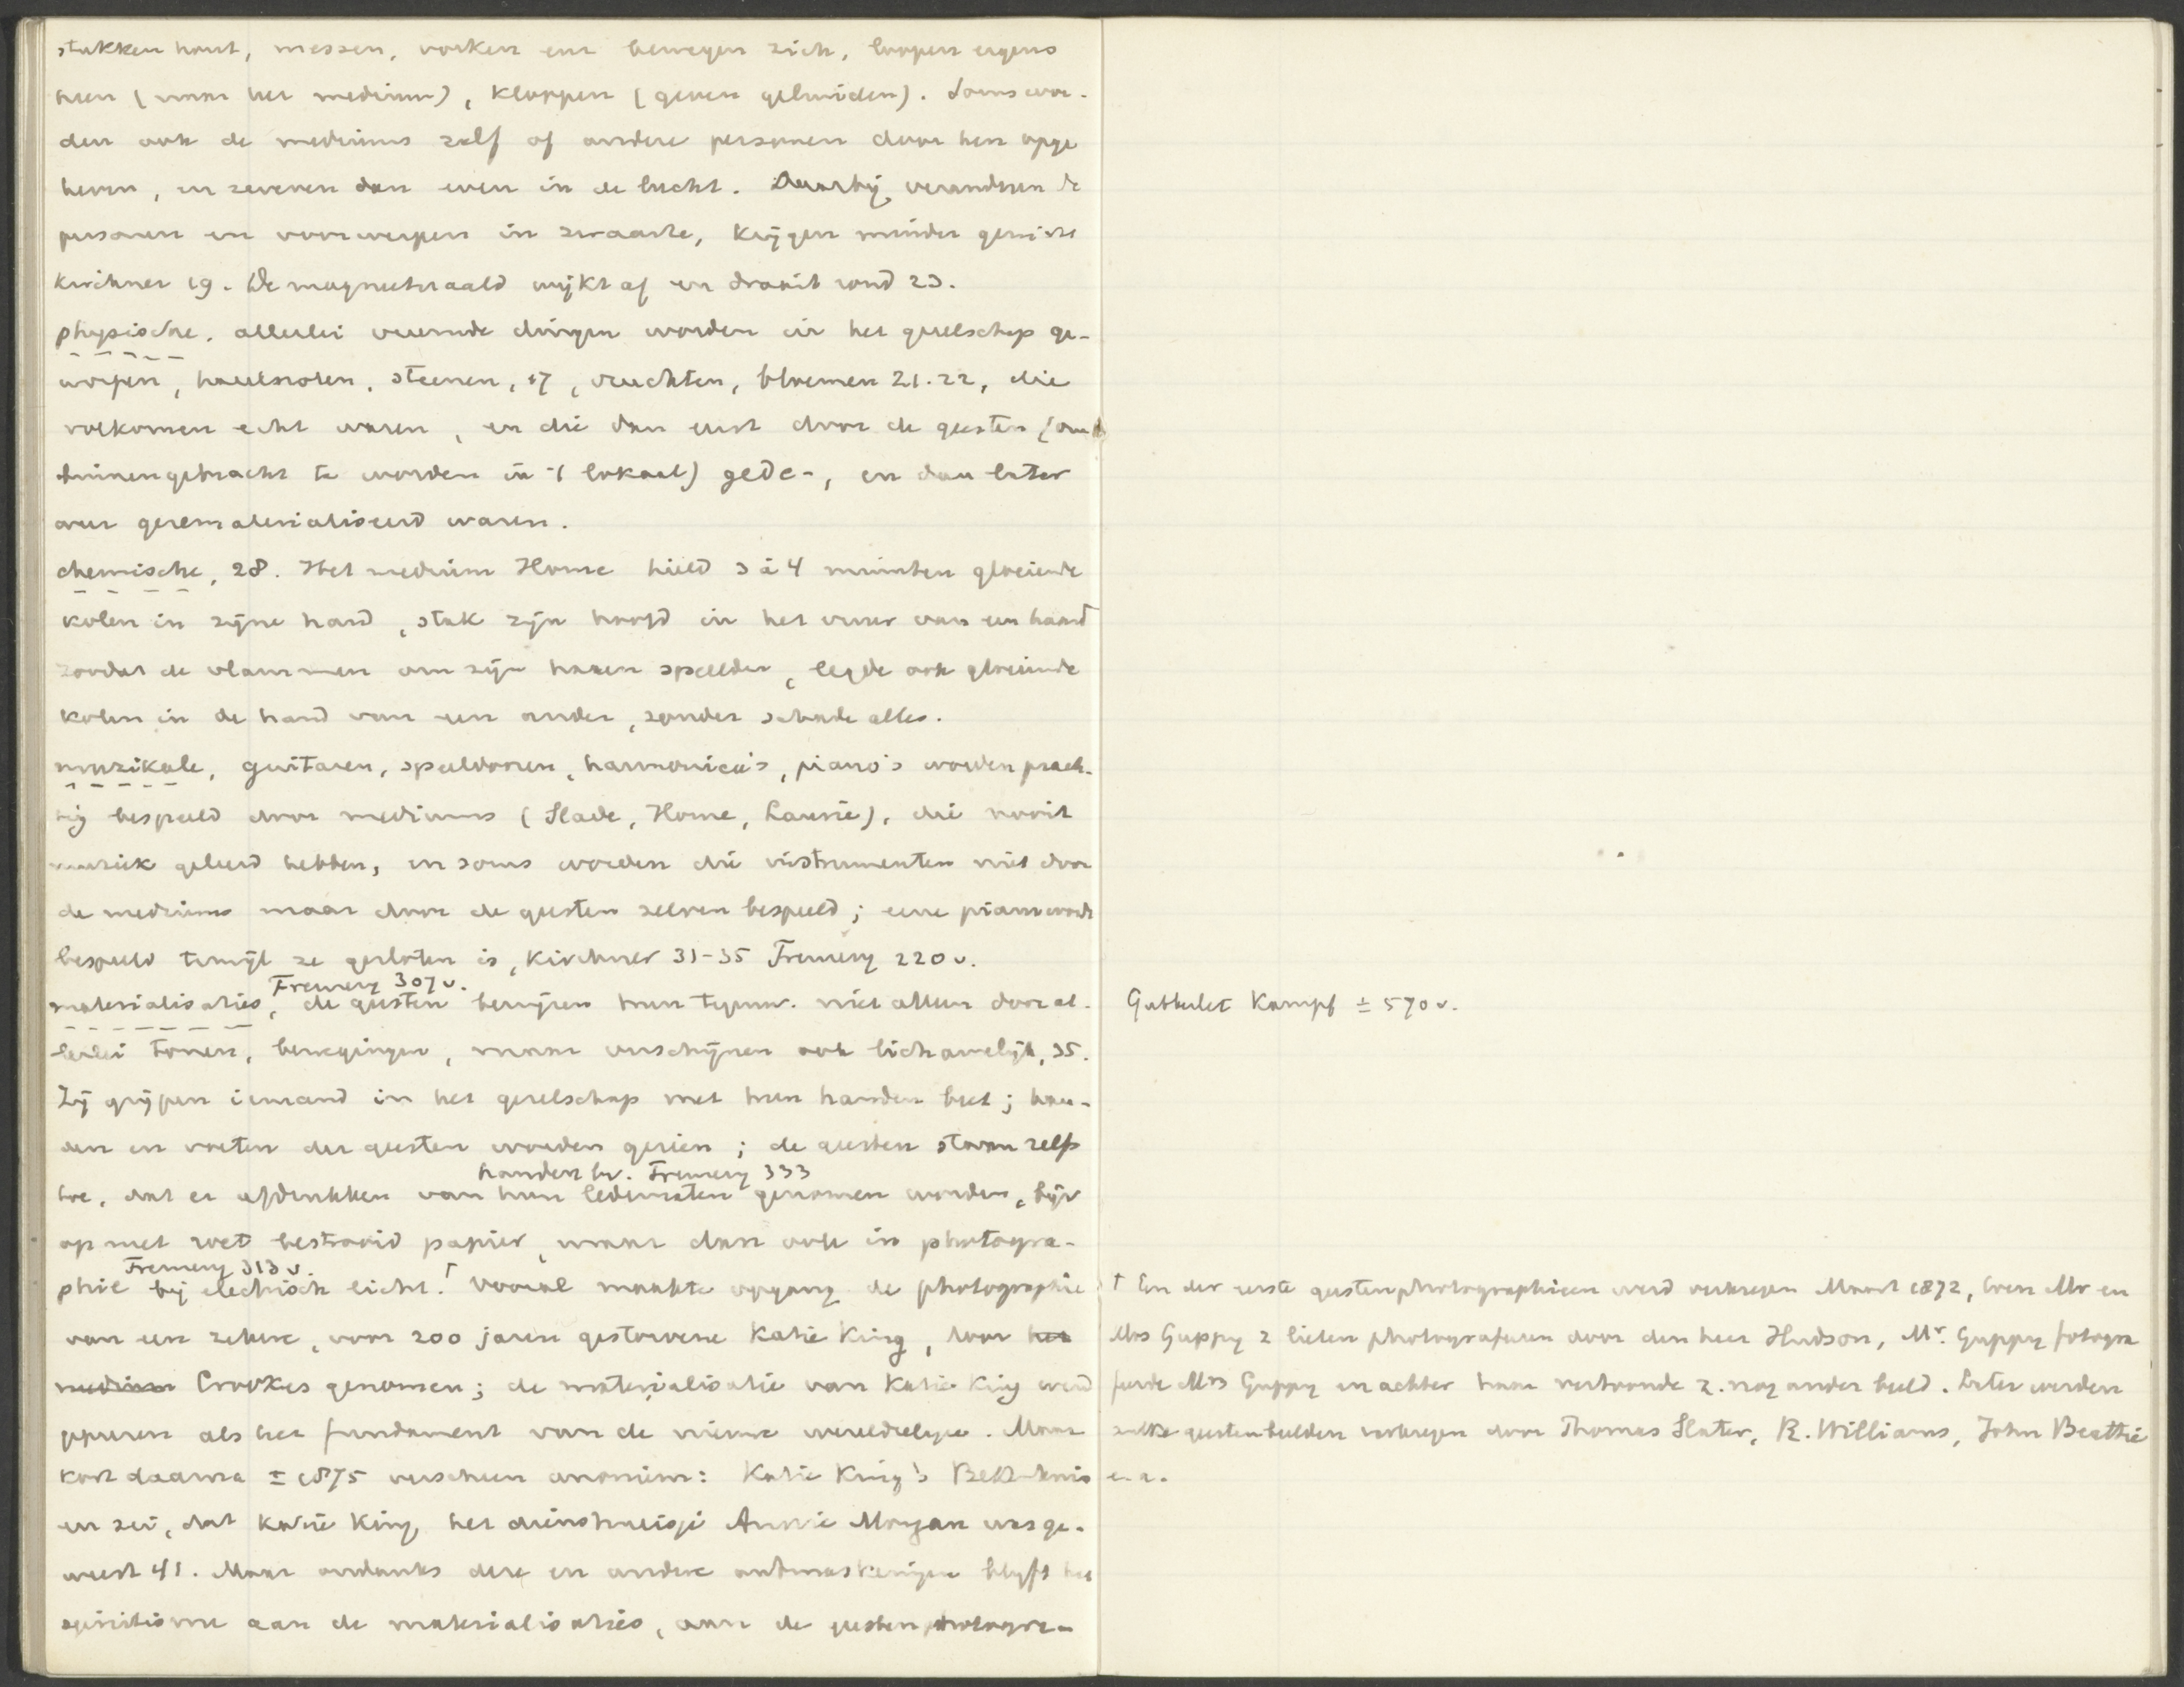 stukken hout, messen, vorken enz bewegen zich, loopen ergens
heen (naar het medium), kloppen (geven geluiden). Soms wor-
den ook de mediums zelf of andere personen door hen opge
heven, en zweven dan even in de lucht. Daarbij veranderen de
personen en voorwerpen in zwaarte, krijgen minder gewicht
Kirchner 19. De magneetnaald wijkt af en draait rond 23.
physische. allerlei vreemde dingen worden in het gezelschap ge-
worpen, hazelnoten, steenen, 17, vruchten, bloemen 21.22, die
volkomen echt waren, en die dan eerst door de geesten (om
binnengebracht te worden in 't lokaal) gede-, en dan later
weer gerematerialiseerd waren.
chemische, 28. Het medium Home hield 3 à 4 minuten gloeiende
kolen in zijne hand, stak zijn hoofd in het vuur van een haard
zoodat de vlammen om zijn haren speelden, legde ook gloeiende
kolen in de hand van een ander, zonder schade alles.
muzikale, guitaren, speeldoozen, harmonica's, piano's worden prach-
tig bespeeld door mediums (Slade, Home, Laurie), die nooit
muziek geleerd hebben, en soms worden die instrumenten niet door
de mediums maar door de geesten zelven bespeeld; eene piano wordt
bespeeld terwijl ze gesloten is, Kirchner 31-35 Fremery 220 v.
Fremery 307 v.
materialisaties, de geesten bewijzen hun tegenw. niet alleen door al-
lerlei tonen, bewegingen, maar verschijnen ook lichamelijk, 35.
Zij grijpen iemand in het gezelschap met hun handen beet; han-
den en voeten der geesten worden gezien; de geesten staan zelfs
handen bv. Fremery 333
toe, dat er afdrukken van hun ledematen genomen worden, bijv
op met roet bestrooid papier, maar dan ook in photogra-
Fremery 313 v.
phie bij electrisch licht.† Vooral maakte opgang de photographie
van een zekere, voor 200 jaren gestorvene Katie King, door het
medium Crookes genomen; de materialisatie van Katie King werd
geprezen als het fundament van de nieuwe wereldreligie. Maar
kort daarna ± 1875 verscheen anoniem: Katie King's Bekentenis
en zei, dat Katie King het dienstmeisje Annie Morgan was ge-
weest 41. Maar ondanks deze en andere ontmaskeringen blijft het
spiritisme aan de materialisaties, aan de geestenphotogra-
Gutberlet Kampf ± 570 v.
† Een der eerste geestenphotographieen werd verkregen Maart 1872, toen Mr en
Mrs Guppy z lieten photografeeren door den heer Hudson, Mr. Guppy fotogra
feerde Mrs Guppy en achter haar vertoonde z. nog ander beeld. Later werden
zulke geestenbeelden verkregen door Thomas Slater, R. Williams, John Beattie
e. a.